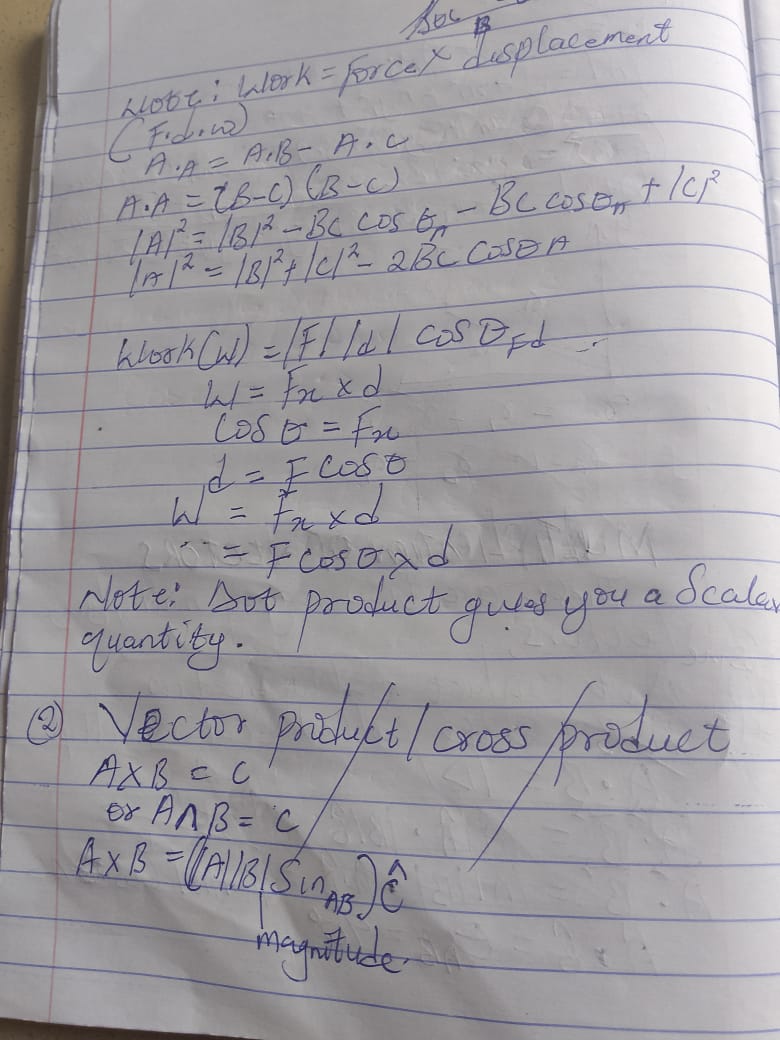 B
Note: Work = Force × displacement
(F.d.w)
A.A = A.B - A.C
A.A = (B-C) (B-C)
|A|² = |B|² - BC cos θn - BC cosθn + |C|²
|A|² = |B|² + |C|² - 2BC Cosθ A
Work(W) = |F| |d| cos θFd
W = Fx × d
Cos θ = Fx
d = F Cosθ
W = Fx × d
∴ = F cosθ × d
Note: Dot product gives you a Scalar
quantity.
② Vector product / cross product
A×B = C
or A∧B = C
A×B = (|A||B| SinAB) Ĉ
magnitude.